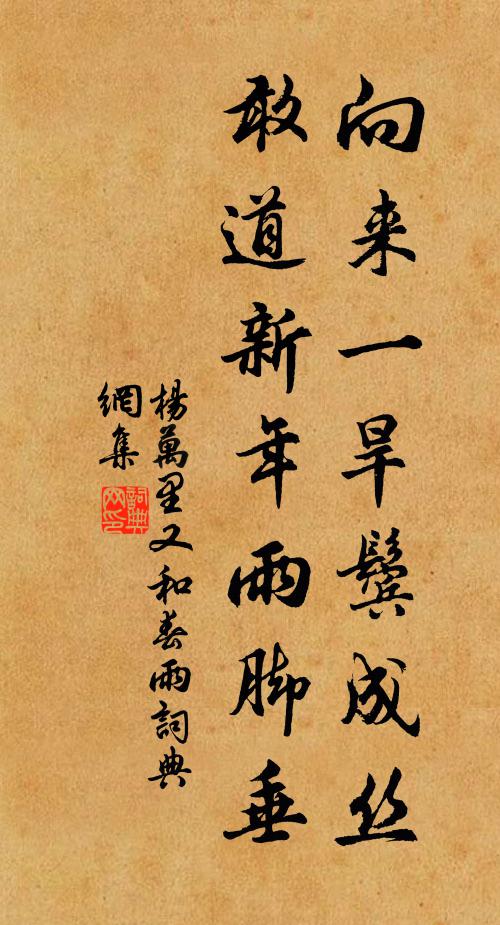 向来一旱鬓成丝
敢道新年雨脚垂
楊萬里又和春雨詞典
網集
詞典
网印